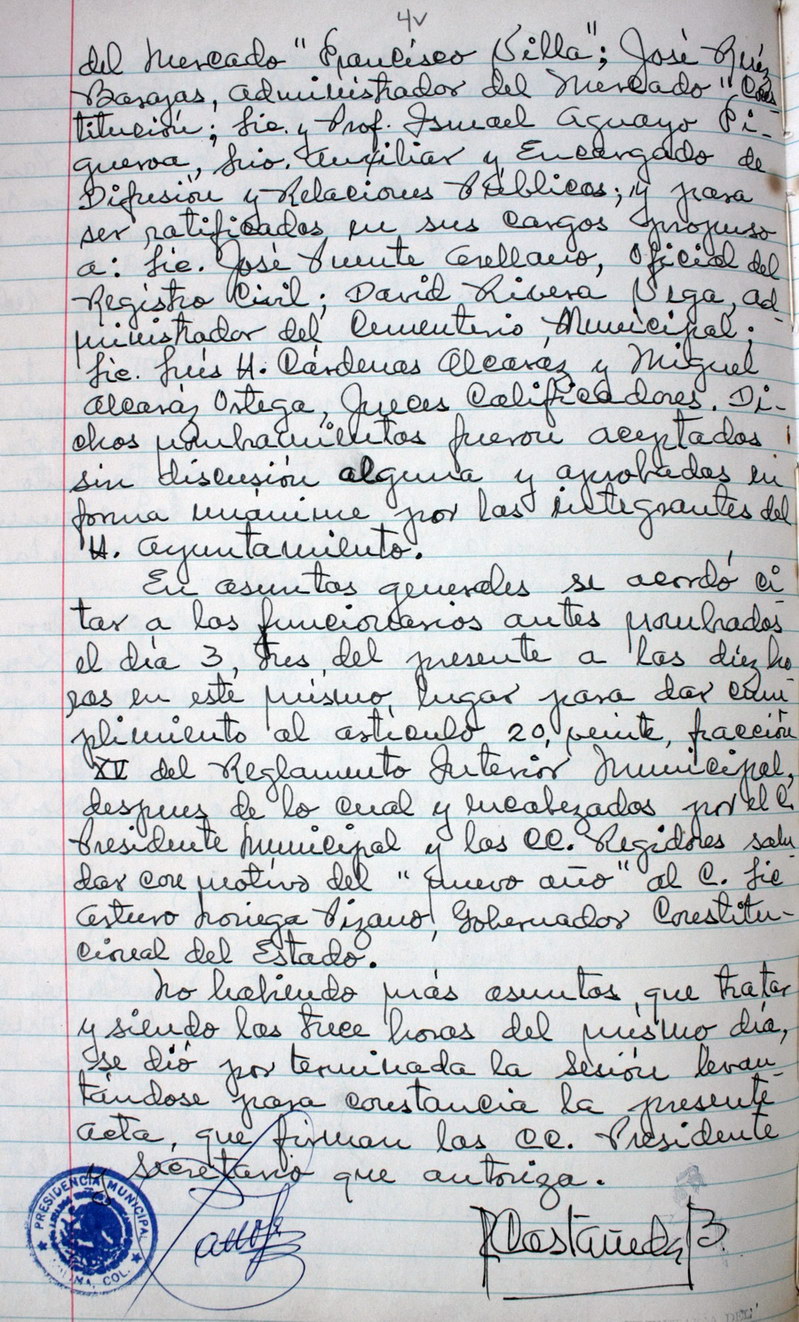 4v
del Mercado "Francisco Villa"; José Ruíz
Barajas, administrador del Mercado "Cons
titución; Lic. y Prof. Ismael Aguayo Fi-
gueroa, Srio. Auxiliar y Encargado de
Difusión y Relaciones Públicas; y para
ser ratificados en sus cargos propuso
a: Lic. José Puente Arellano, Oficial del
Registro Civil; David Rivera Vega, ad-
ministrador del Cementerio Municipal;
Lic. Luis H. Cárdenas Alcaráz y Miguel
Alcaráz Ortega, Jueces Calificadores. Di-
chos nombramientos fueron aceptados
sin discusión alguna y aprobados en
forma unánime por los integrantes del
H. Ayuntamiento.
En asuntos generales se acordó ci
tar a los funcionarios antes nombrados
el día 3, tres, del presente a las diez ho
ras en este mismo lugar para dar cum
plimiento al artículo 20, veinte, fracción
XV del Reglamento Interior Municipal,
despues de lo cual y encabezados por el C.
Presidente Municipal y los CC. Regidores salu
dar con motivo del "nuevo año" al C. Lic
Arturo Noriega Pizano, Gobernador Constitu-
cional del Estado.
No habiendo más asuntos que tratar
y siendo las trece horas del mismo día,
se dió por terminada la sesión levan-
tándose para constancia la presente
acta, que firman los CC. Presidente
y Secretario que autoriza.
PRESIDENCIA MUNICIPAL
COLIMA, COL.
RCastañeda B.